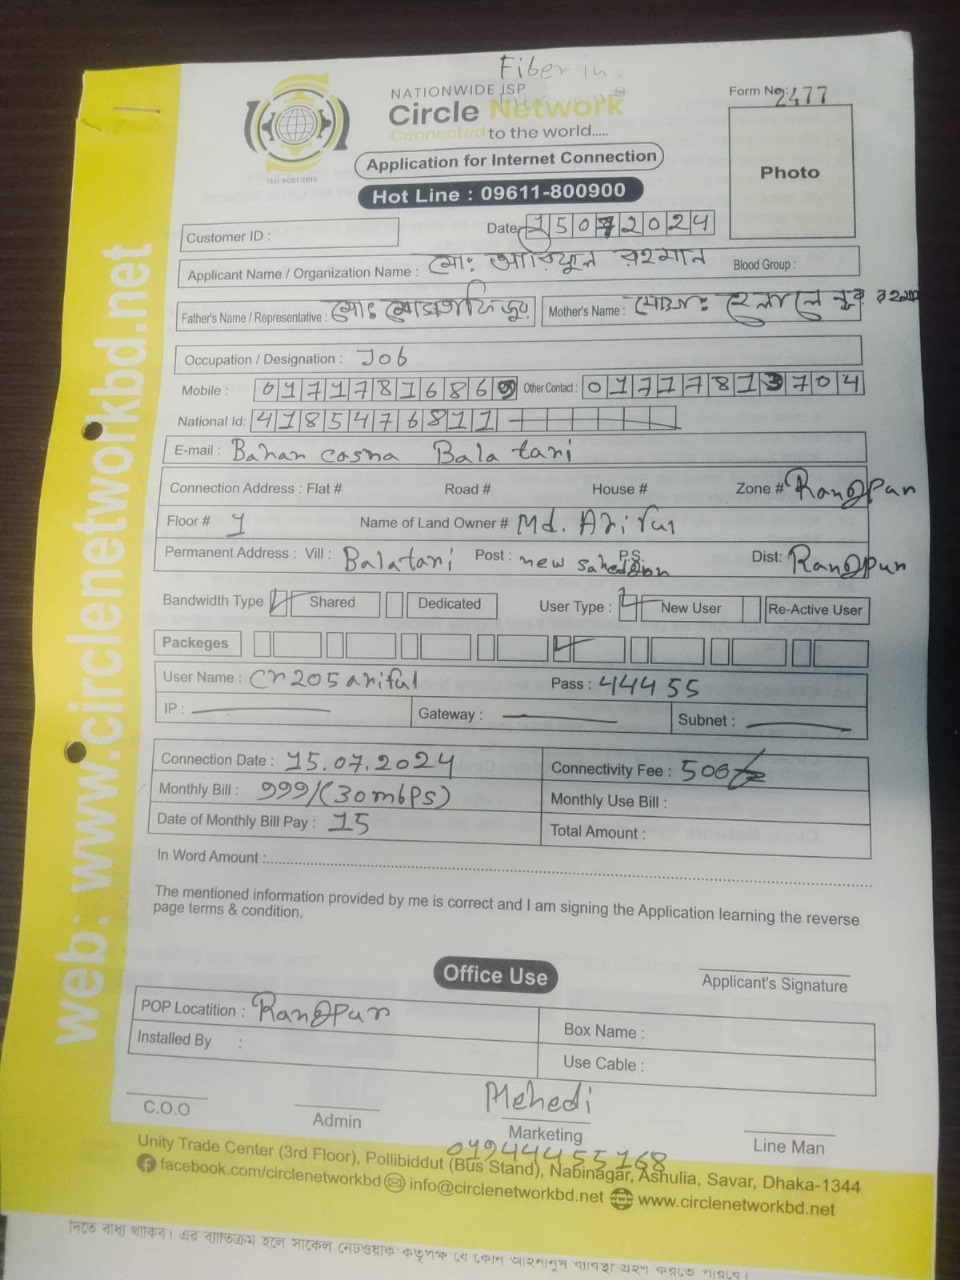 Fiber in
NATIONWIDE ISP
Circle Network
Connected to the world.....
ISO 9001:2015
Form No: 2477
Application for Internet Connection
Photo
Hot Line : 09611-800900
Customer ID :
Date 15072024
Applicant Name / Organization Name : মোঃ আরিফুল রহমান Blood Group :
Father's Name / Representative : মোঃ Mother's Name :
Occupation / Designation : Job
Mobile : 01717816869 Other Contact : 01777813704
National Id: 4185476811
E-mail : Bahar casna Balatari
Connection Address : Flat # Road # House # Zone # Rangpur
Floor # 1 Name of Land Owner # Md. Ariful
Permanent Address : Vill : Balatari Post : new P.S. Dist: Rangpur
Bandwidth Type Shared Dedicated User Type : New User Re-Active User
Packeges
User Name : Cr205ariful Pass : 444 55
IP : Gateway : Subnet :
Connection Date : 15.07.2024 Connectivity Fee : 500/=
Monthly Bill : 999/(30mbps) Monthly Use Bill :
Date of Monthly Bill Pay : 15 Total Amount :
In Word Amount :
The mentioned information provided by me is correct and I am signing the Application learning the reverse
page terms & condition.
Office Use
Applicant's Signature
POP Locatition : Rangpur Box Name :
Installed By : Use Cable :
Mehedi
C.O.O Admin Marketing Line Man
01944455168
Unity Trade Center (3rd Floor), Pollibiddut (Bus Stand), Nabinagar, Ashulia, Savar, Dhaka-1344
facebook.com/circlenetworkbd info@circlenetworkbd.net www.circlenetworkbd.net
দিতে বাধ্য থাকিব। এর ব্যতিক্রম হলে সার্কেল নেটওয়ার্ক কতৃপক্ষ যে কোন আইনানুগ ব্যাবস্থা গ্রহণ করতে পারবে।
web: www.circlenetworkbd.net